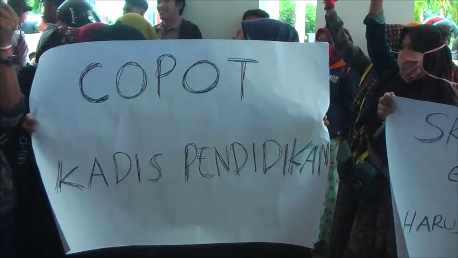 COPOT
KADIS PENDIDIKAN
SK
HARUS